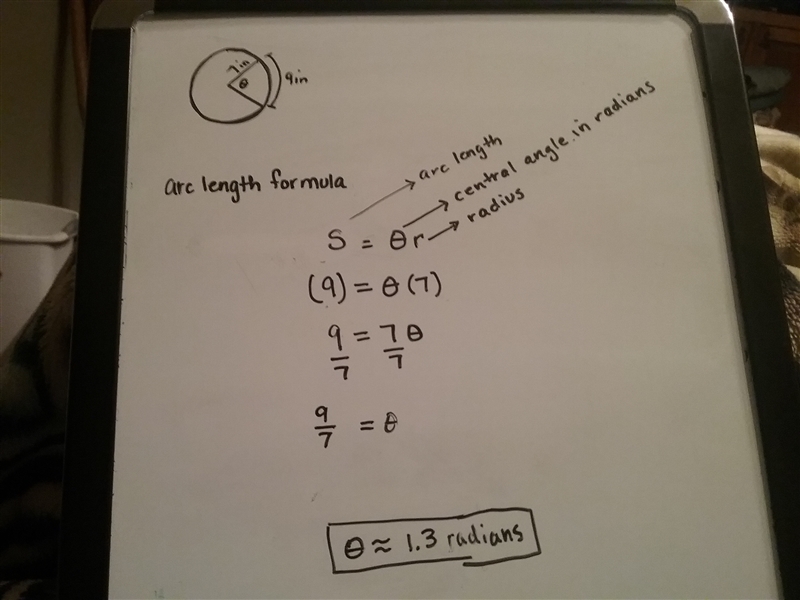 7in
θ
9in
arc length formula
arc length
central angle in radians
radius
S = θr
(9) = θ(7)
9/7 = 7θ/7
9/7 = θ
θ ≈ 1.3 radians